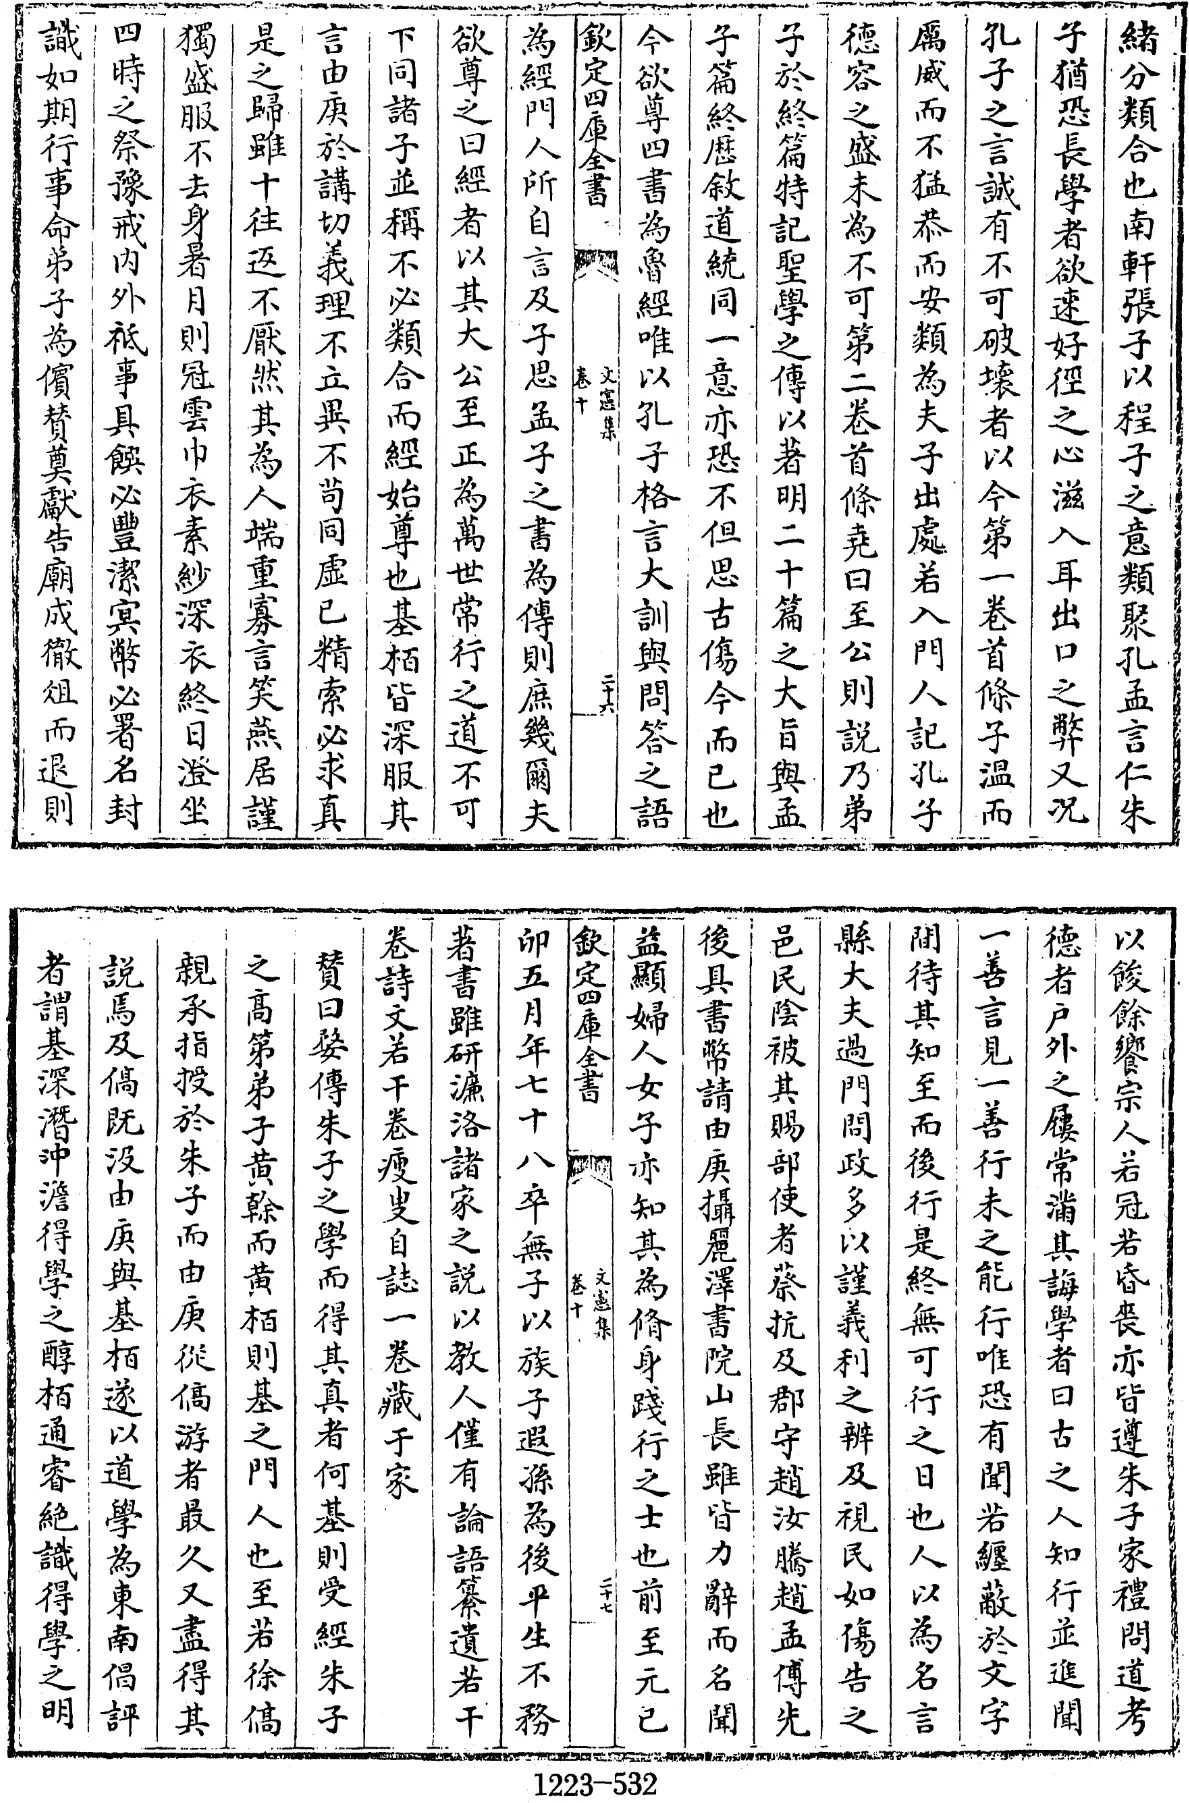 緒分類合也南軒張子以程子之意類聚孔孟言仁朱
子猶恐長學者欲速好徑之心滋入耳出口之弊又况
孔子之言誠有不可破壞者以今第一卷首條子溫而
厲威而不猛恭而安類為夫子出處若入門人記孔子
德容之盛未為不可第二卷首條堯曰至公則説乃弟
子於終篇特記聖學之傳以著明二十篇之大旨與孟
子篇終歴敘道統同一意亦恐不但思古傷今而已也
今欲尊四書為魯經唯以孔子格言大訓與問答之語
欽定四庫全書
文憲集
卷十
二十六
為經門人所自言及子思孟子之書為傳則庶幾爾夫
欲尊之曰經者以其大公至正為萬世常行之道不可
下同諸子並稱不必類合而經始尊也基栢皆深服其
言由庚於講切義理不立異不苟同虚己精索必求真
是之歸雖十往返不厭然其為人端重寡言笑燕居謹
獨盛服不去身暑月則冠雲巾衣素紗深衣終日澄坐
四時之祭豫戒内外祗事具饌必豐潔寘幣必署名封
識如期行事命弟子為儐贊奠獻告廟成徹俎而退則
以餕餘饗宗人若冠若昏喪亦皆遵朱子家禮問道考
德者户外之屨常滿其誨學者曰古之人知行並進聞
一善言見一善行未之能行唯恐有聞若纒蔽於文字
間待其知至而後行是終無可行之日也人以為名言
縣大夫過門問政多以謹義利之辨及視民如傷告之
邑民陰被其賜部使者蔡抗及郡守趙汝騰趙孟傅先
後具書幣請由庚攝麗澤書院山長雖皆力辭而名聞
益顯婦人女子亦知其為脩身踐行之士也前至元已
欽定四庫全書
文憲集
卷十
二十七
卯五月年七十八卒無子以族子遐孫為後平生不務
著書雖研濂洛諸家之説以教人僅有論語纂遺若干
卷詩文若干卷瘦叟自誌一卷藏于家
贊曰婺傳朱子之學而得其真者何基則受經朱子
之高第弟子黄榦而黄栢則基之門人也至若徐僑
親承指授於朱子而由庚從僑游者最久又盡得其
説焉及僑既沒由庚與基栢遂以道學為東南倡評
者謂基深潛沖澹得學之醇栢通睿絶識得學之明
1223-532